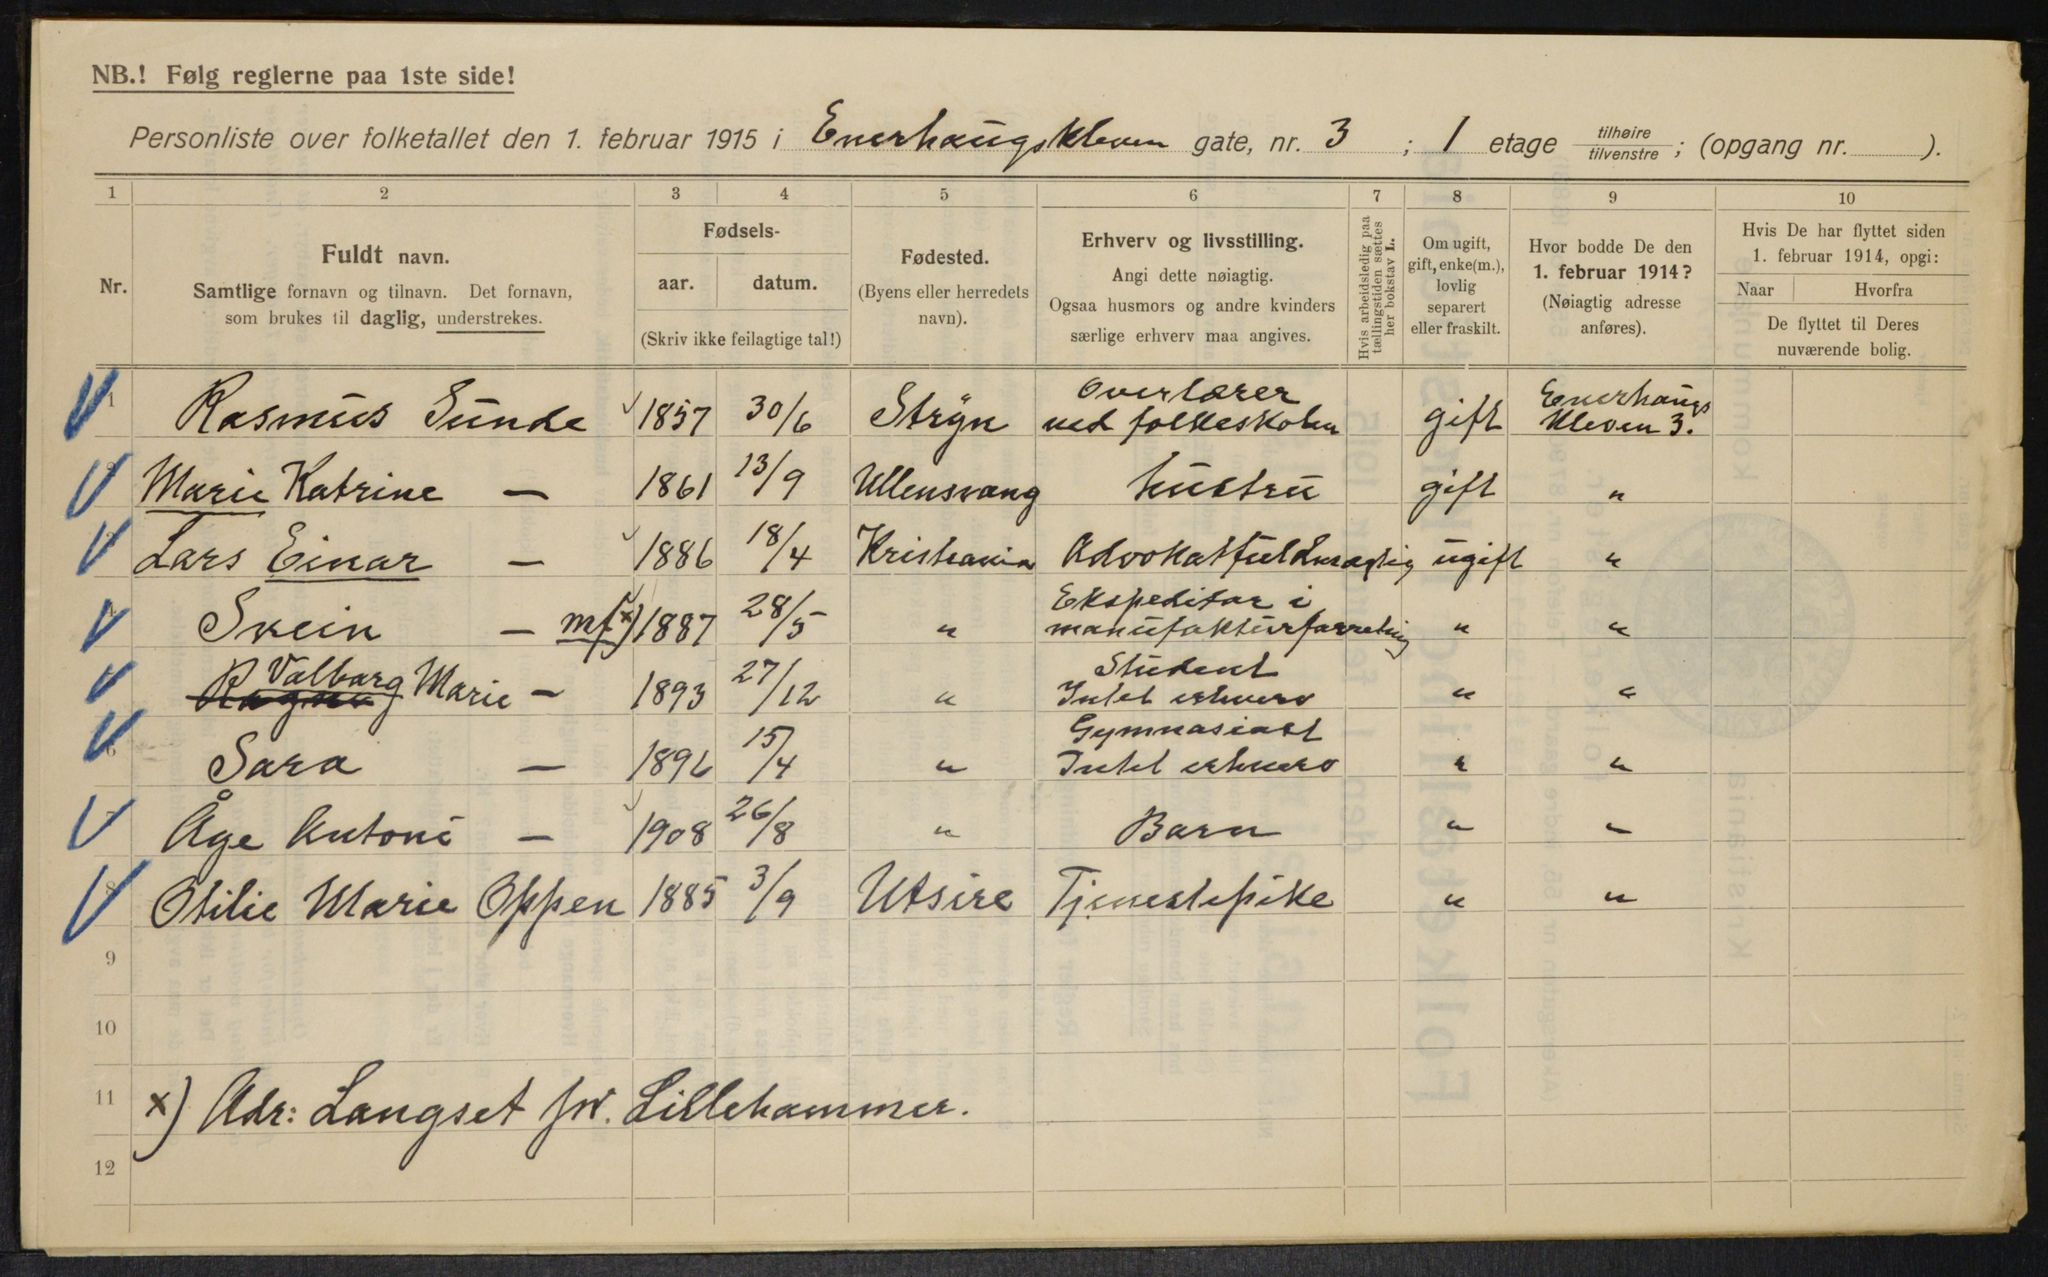 NB.! Følg reglerne paa 1ste side!
Personliste over folketallet den 1. februar 1915 i Enerhaugskleven gate, nr. 3 ; 1 etage tilhøire tilvenstre ; (opgang nr. ).
1 2 3 4 5 6 7 8 9 10
Nr.
Fuldt navn.
Samtlige fornavn og tilnavn. Det fornavn,
som brukes til daglig, understrekes.
Fødsels-
aar. datum.
(Skriv ikke feilagtige tal!)
Fødested.
(Byens eller herredets
navn).
Erhverv og livsstilling.
Angi dette nøiagtig.
Ogsaa husmors og andre kvinders
særlige erhverv maa angives.
Hvis arbeidsledig paa
tællingstiden sættes
her bokstav L.
Om ugift,
gift, enke(m.),
lovlig
separert
eller fraskilt.
Hvor bodde De den
1. februar 1914?
(Nøiagtig adresse
anføres).
Hvis De har flyttet siden
1. februar 1914, opgi:
Naar Hvorfra
De flyttet til Deres
nuværende bolig.
1 Rasmus Sunde 1857 30/6 Stryn Overlærer ved folkeskolen gift Enerhaugs kleven 3.
2 Marie Katrine — 1861 13/9 Ullensvang hustru gift "
3 Lars Einar — 1886 18/4 Kristiania Advokatfuldmægtig ugift "
4 Svein — mf x) 1887 28/5 " Ekspeditør i manufakturforretning " "
Valborg Marie — 1893 27/12 " Student Intet erhverv " "
6 Sara — 1896 15/4 " Gymnasiast Intet erhverv " "
7 Åge Antoni — 1908 26/8 " Barn " "
8 Otilie Marie Oppen 1885 3/9 Utsire Tjenestepike " "
9
10
11 x) Adr: Langset pr. Lillehammer.
12